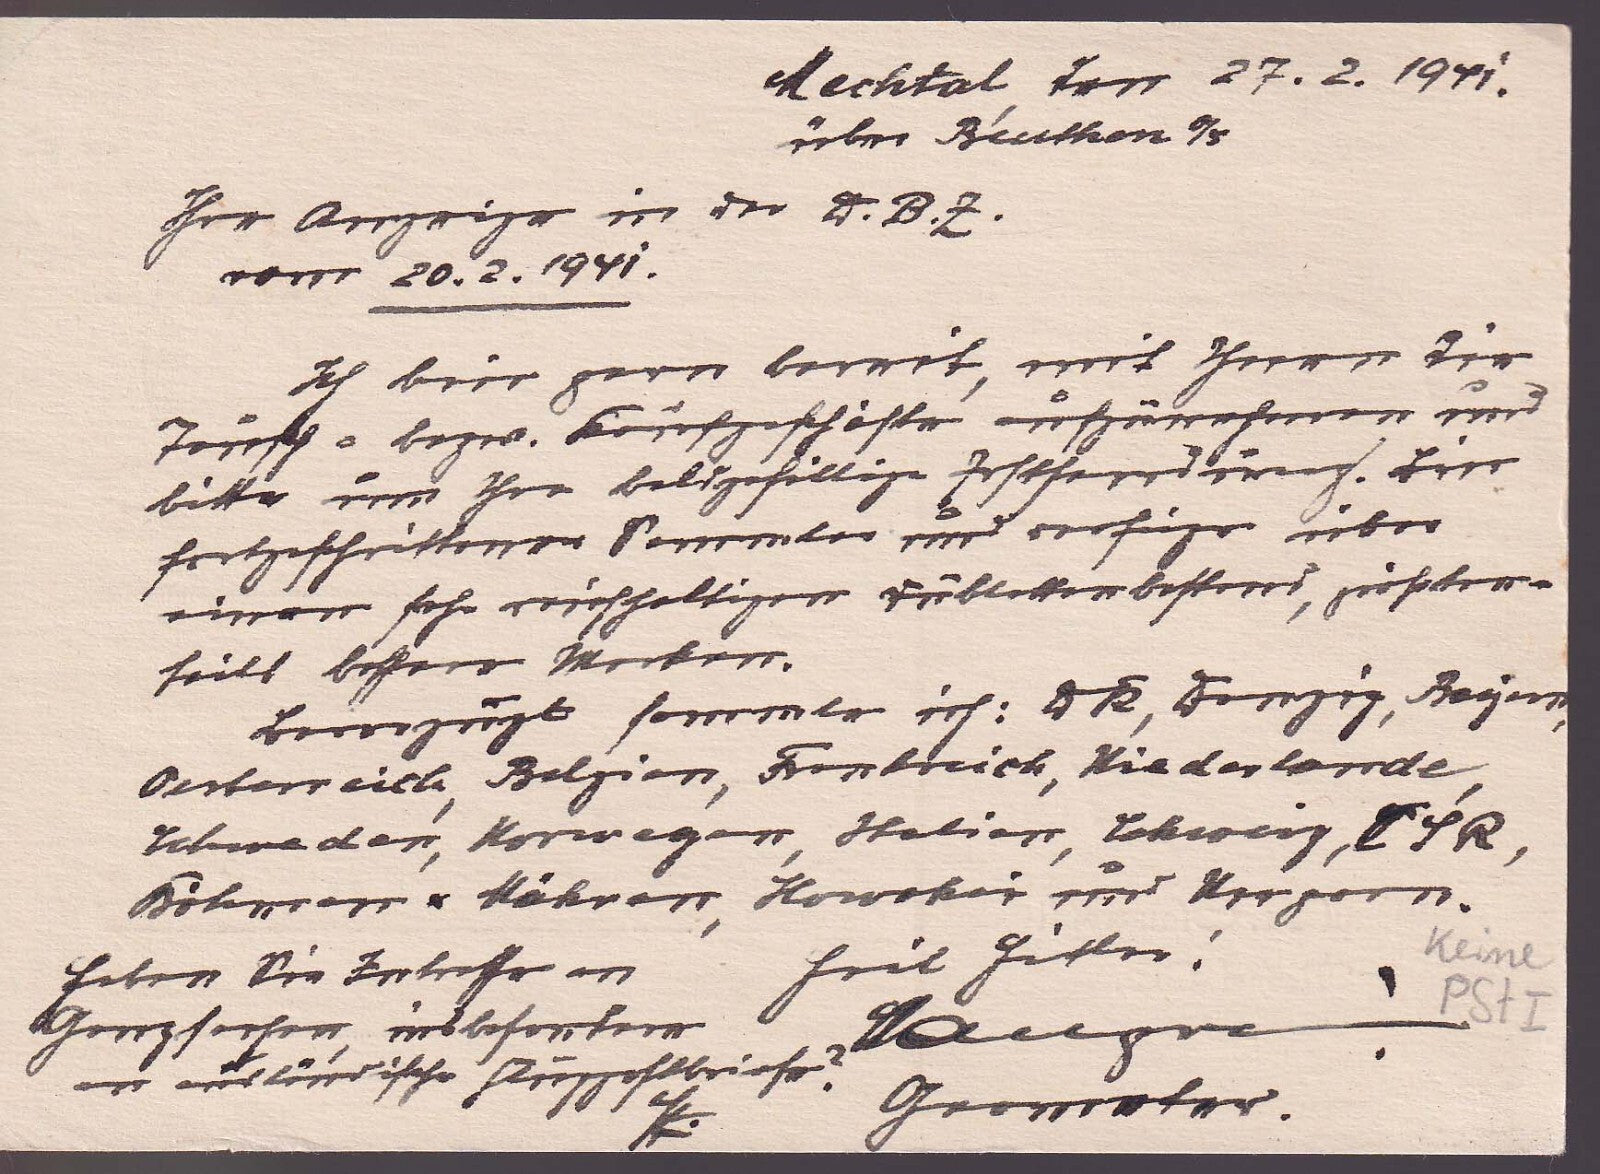 Mechtal, den 27.2.1941.
über Beuthen O/S
Ihre Anzeige in der D.B.Z.
vom 20.2.1941.
Ich bin gern bereit, mit Ihnen die
Tausch- bezw. Kaufgeschäfte aufzunehmen und
bitte um Ihre baldgefällige Bin
fortgeschrittener Sammler und verfüge über
einen sehr reichhaltigen Dublettenbestand, größten-
teils bessere Marken.
Bevorzugt sammle ich: DR, Danzig, Bayern,
Oesterreich, Belgien, Frankreich, Niederlande,
Schweden, Norwegen, Italien, Schweiz, ČSR,
Böhmen & Mähren, Slowakei und Ungarn.
Haben Sie Intresse an
Ganzsachen, insbesondere
an ausländische Flugpostbriefe?
Heil Hitler!
Geometer.
Keine
PSt I